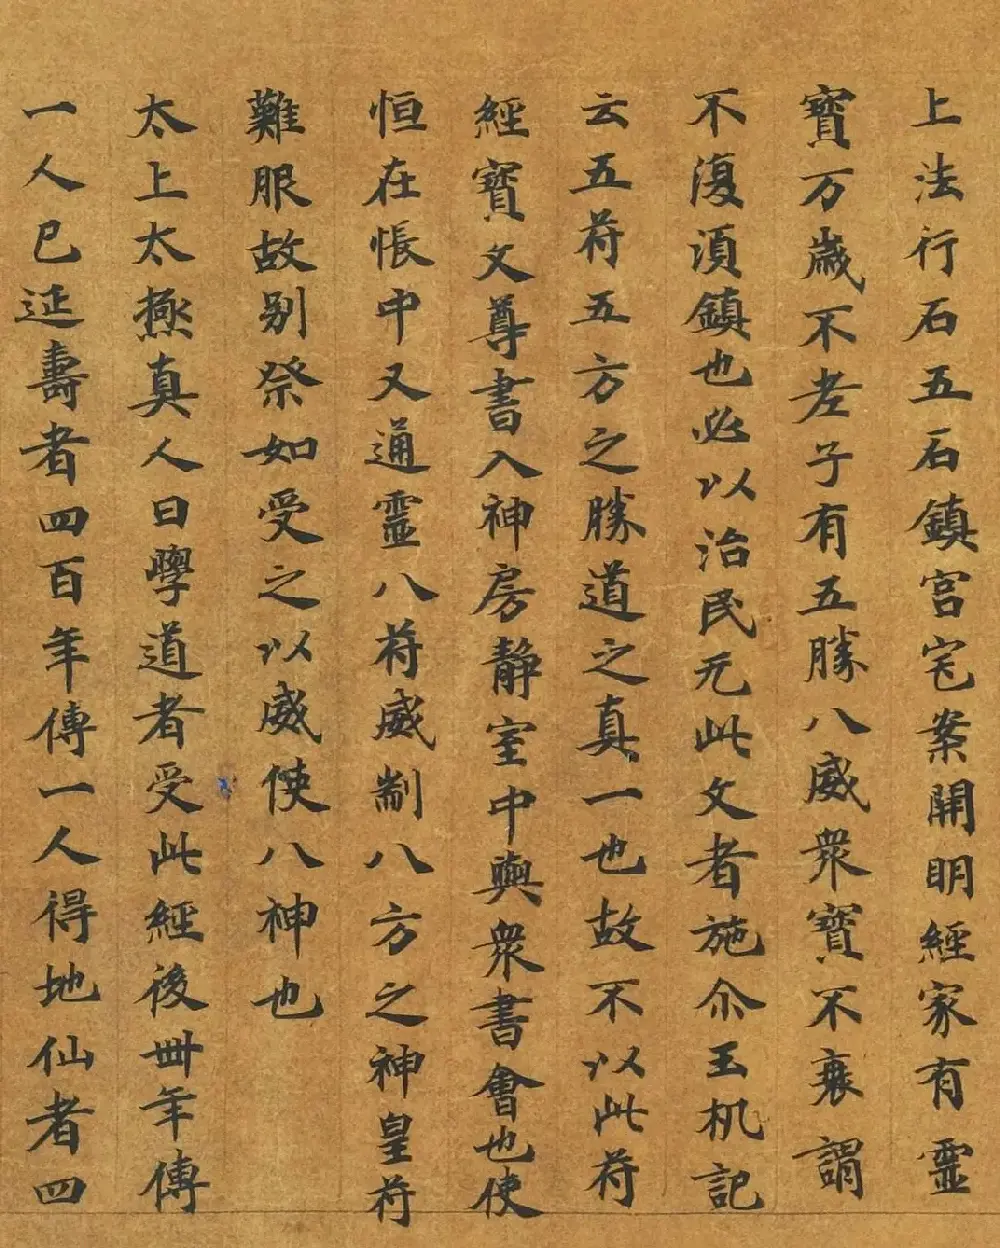 上法行石五石鎮宮宅案開明經家有靈
寶万歲不老子有五勝八威衆寶不衰謂
不復須鎮也必以治民无此文者施尒玉机記
云五苻五方之勝道之真一也故不以此苻
經寶文尊書入神房靜室中與衆書會也使
恒在帳中又通靈八苻威制八方之神皇苻
難服故别祭如受之以威使八神也
太上太極真人曰學道者受此經後卌年傳
一人已延壽者四百年傳一人得地仙者四